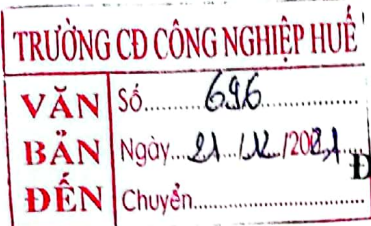 TRƯỜNG CĐ CÔNG NGHIỆP HUẾ
VĂN
BẢN
ĐẾN
Số.........696...................
Ngày...21.../12.../2021....
Chuyển..............................
Đ